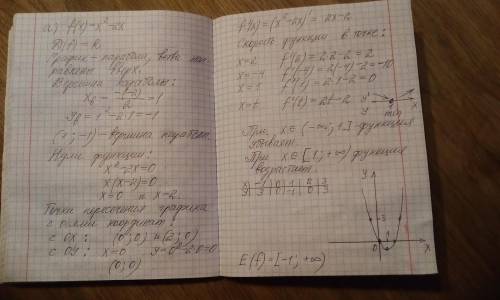 а) f(x)=x²-2x
D(f)=R.
График - парабола, ветви нап-
равлены вверх.
Вершина параболы:
x₈ = -(-2)/2 = 1
y₈ = 1²-2·1=-1
(1; -1) - вершина параболы.
Нули функции:
x²-2x=0
x(x-2)=0
x=0 и x=2.
Точки пересечения графика
с осями координат:
с OX: (0; 0) и (2; 0)
с OY: x=0 y=0²-2·0=0
(0; 0)
f'(x)=(x²-2x)'=2x-2
Скорость функции в точке:
x=2 f'(2)=2·2-2=2
x=-4 f'(-4)=2·(-4)-2=-10
x=1 f'(1)=2·1-2=0
x=t f'(t)=2t-2
- + y'
1 y
min
При x∈(-∞; 1]-функция
убывает.
При x∈[1; +∞) функция
возрастает.
x -1 0 1 2 3
y 3 0 -1 0 3
y
3
0 1 x
E(f)=[-1; +∞)